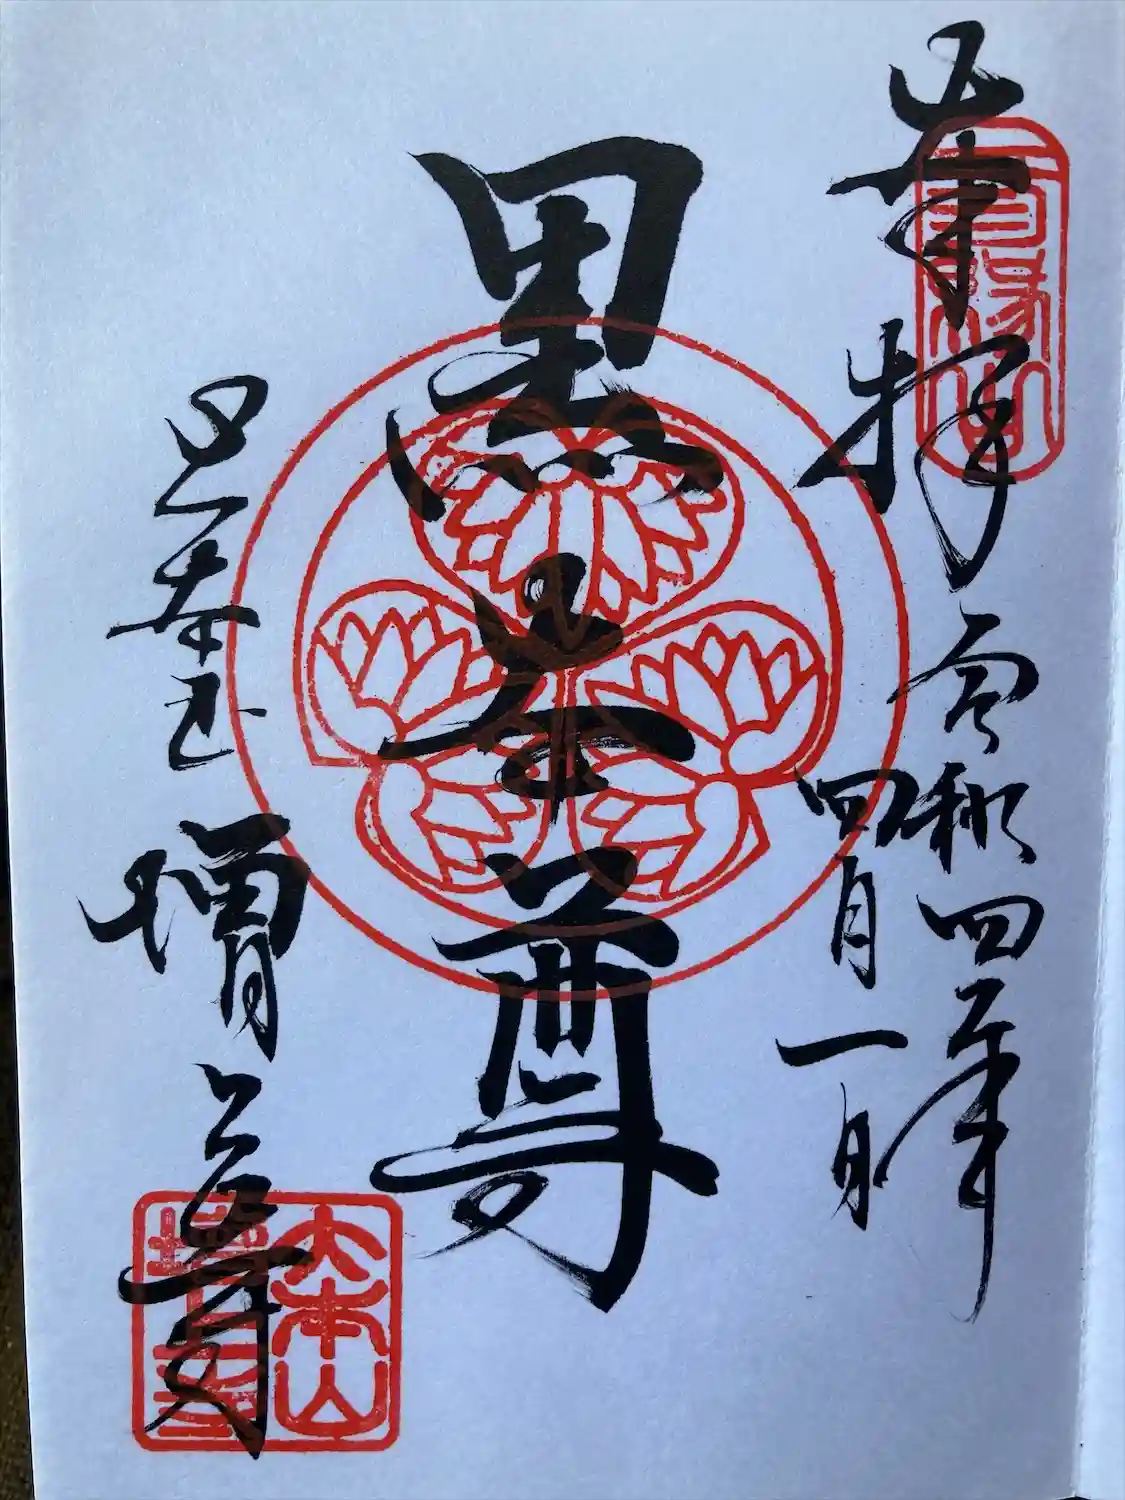 奉拝
令和四年
四月一日
黒本尊
大本山
増上寺